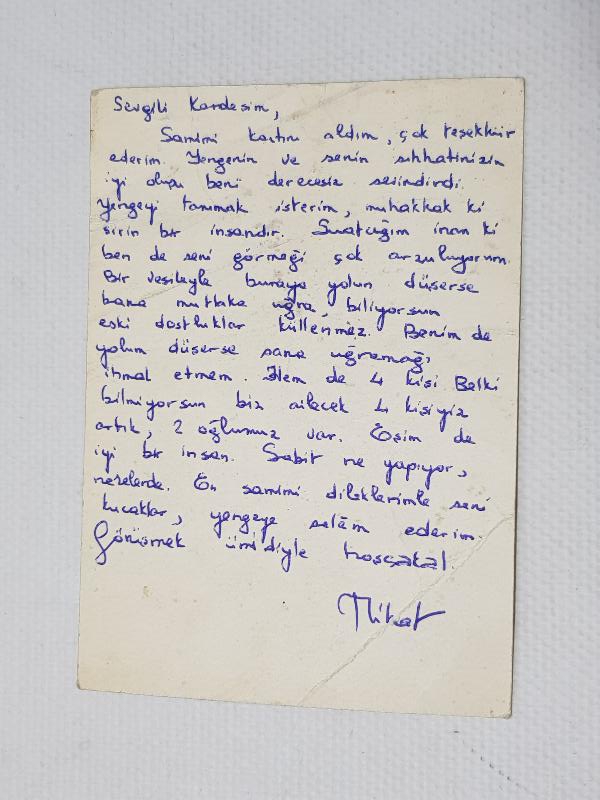 Sevgili Kardeşim,
Samimi kartını aldım, çok teşekkür
ederim. Yengenin ve senin sıhhatinizin
iyi oluşu beni derecesiz sevindirdi.
Yengeyi tanımak isterim, muhakkak ki
şirin bir insandır. Suatcığım inan ki
ben de seni görmeği çok arzuluyorum.
Bir vesileyle buraya yolun düşerse
bana mutlaka uğra, biliyorsun
eski dostluklar küllenmez. Benim de
yolum düşerse sana uğramağı
ihmal etmem. Hem de 4 kişi. Belki
bilmiyorsun biz ailecek 4 kişiyiz
artık, 2 oğlumuz var. Eşim de
iyi bir insan. Sabit ne yapıyor,
nerelerde. En samimi dileklerimle seni
kucaklar, yengeye selâm ederim.
Görüşmek ümidiyle hoşçakal.
Mithat